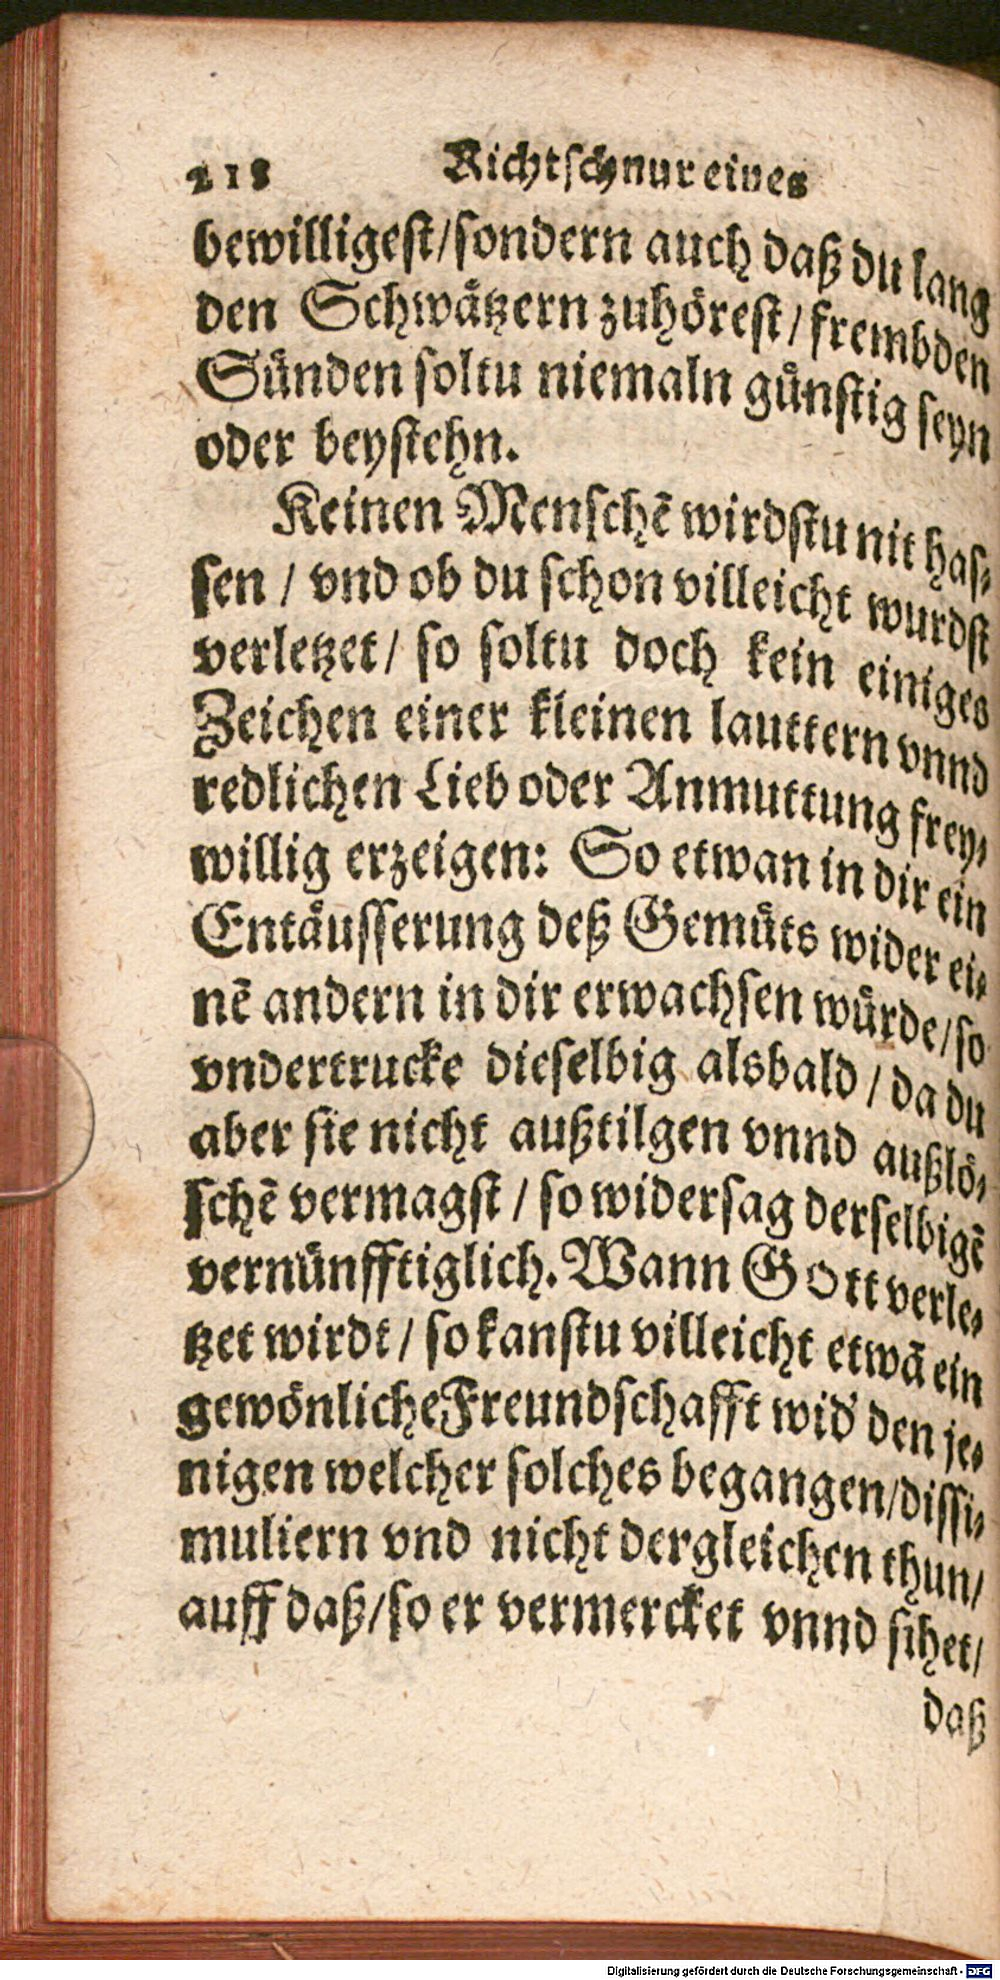 218 Richtschnur eines
bewilligest/sondern auch daß du lang
den Schwåtzern zuhörest/frembden
Sünden soltu niemaln günstig seyn
oder beystehn.
Keinen Menschẽ wirdstu nit has⸗
sen / vnd ob du schon villeicht wurdst
verletzet/ so soltu doch kein einiges
Zeichen einer kleinen lauttern vnnd
redlichen Lieb oder Anmuttung frey⸗
willig erzeigen: So etwan in dir ein
Entåusserung deß Gemůts wider ei⸗
nẽ andern in dir erwachsen würde/so
vndertrucke dieselbig alsbald / da du
aber sie nicht außtilgen vnnd außlö⸗
schẽ vermagst / so widersag derselbigẽ
vernünfftiglich. Wann GOtt verle⸗
tzet wirdt/ so kanstu villeicht etwã ein
gewönliche Freundschafft wid' den je⸗
nigen welcher solches begangen/dissi⸗
muliern vnd nicht dergleichen thun/
auff daß/so er vermercket vnnd sihet/
daß
Digitalisierung gefördert durch die Deutsche Forschungsgemeinschaft - DFG